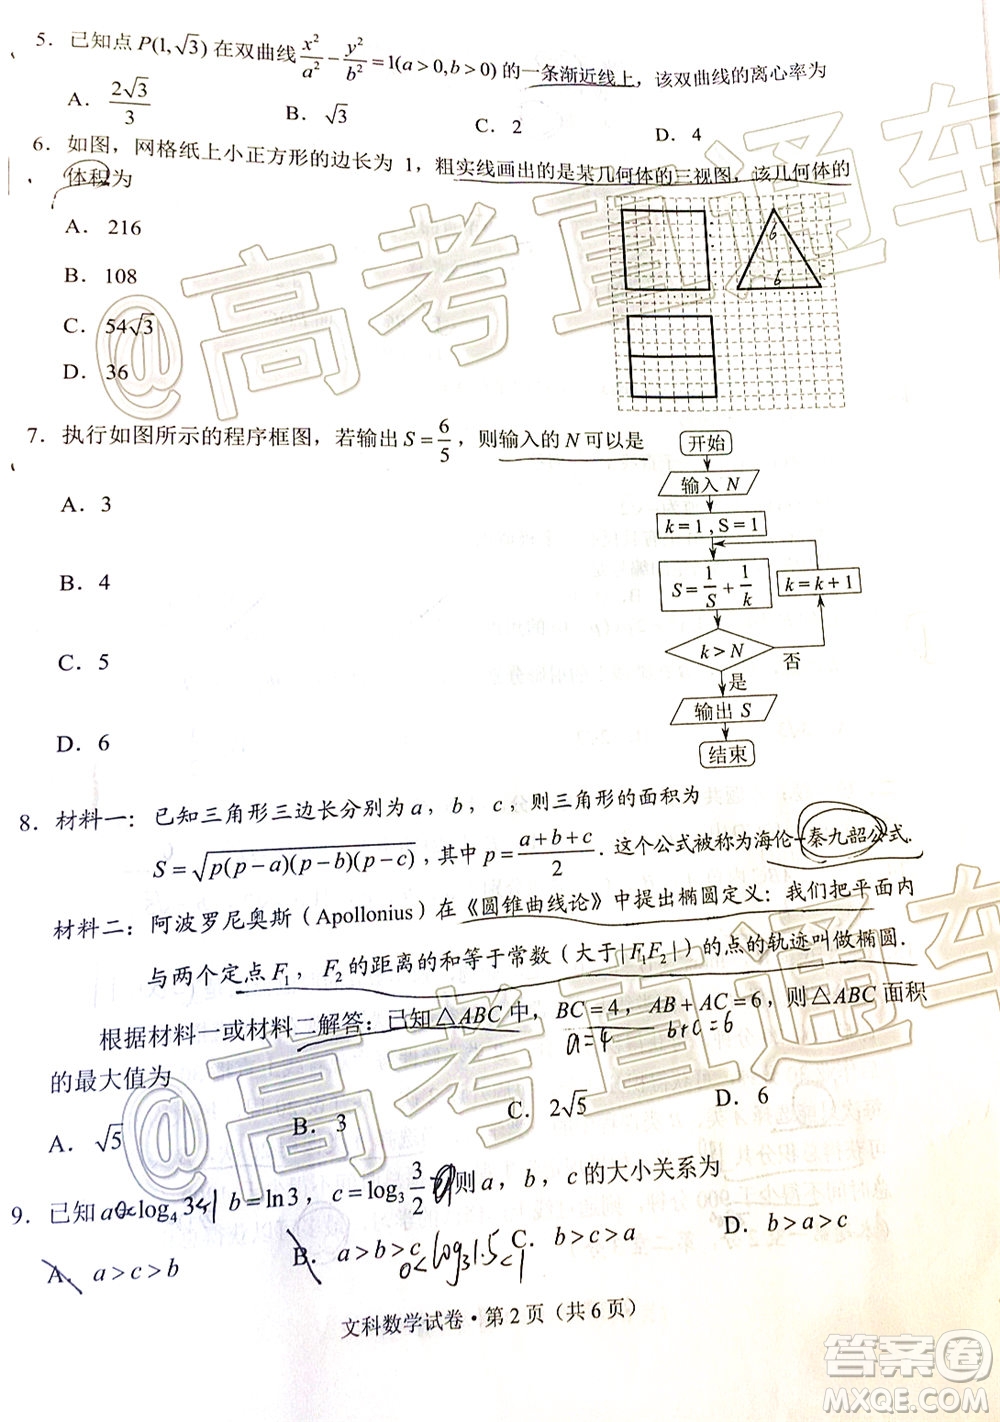 5. 已知点 P(1,√3) 在双曲线 x²/a² − y²/b² =1(a>0,b>0) 的一条渐近线上，该双曲线的离心率为
A. 2√3/3 B. √3 C. 2 D. 4
6. 如图，网格纸上小正方形的边长为 1，粗实线画出的是某几何体的三视图，该几何体的
体积为
A. 216
B. 108
C. 54√3
D. 36
6
6
7. 执行如图所示的程序框图，若输出 S = 6/5，则输入的 N 可以是
A. 3
B. 4
C. 5
D. 6
开始
输入 N
k=1,S=1
S= 1/S + 1/k
k=k+1
k>N
否
是
输出 S
结束
8. 材料一：已知三角形三边长分别为 a，b，c，则三角形的面积为
S=√(p(p−a)(p−b)(p−c))，其中 p= (a+b+c)/2．这个公式被称为海伦–秦九韶公式．
材料二：阿波罗尼奥斯（Apollonius）在《圆锥曲线论》中提出椭圆定义：我们把平面内
与两个定点 F₁，F₂ 的距离的和等于常数（大于|F₁F₂|）的点的轨迹叫做椭圆．
根据材料一或材料二解答：已知△ABC中，BC=4，AB+AC=6，则△ABC面积
a=4 b+c=6
的最大值为
A. √5 B. 3 C. 2√5 D. 6
9. 已知 a=log₄3<1 b=ln3，c=log₃ 3/2 则 a，b，c 的大小关系为
A. a>c>b B. a>b>c C. b>c>a D. b>a>c
0<log₃1.5<1
文科数学试卷·第2页（共6页）
@高考直通车
@高考直通车
答案圈
MXQE.COM